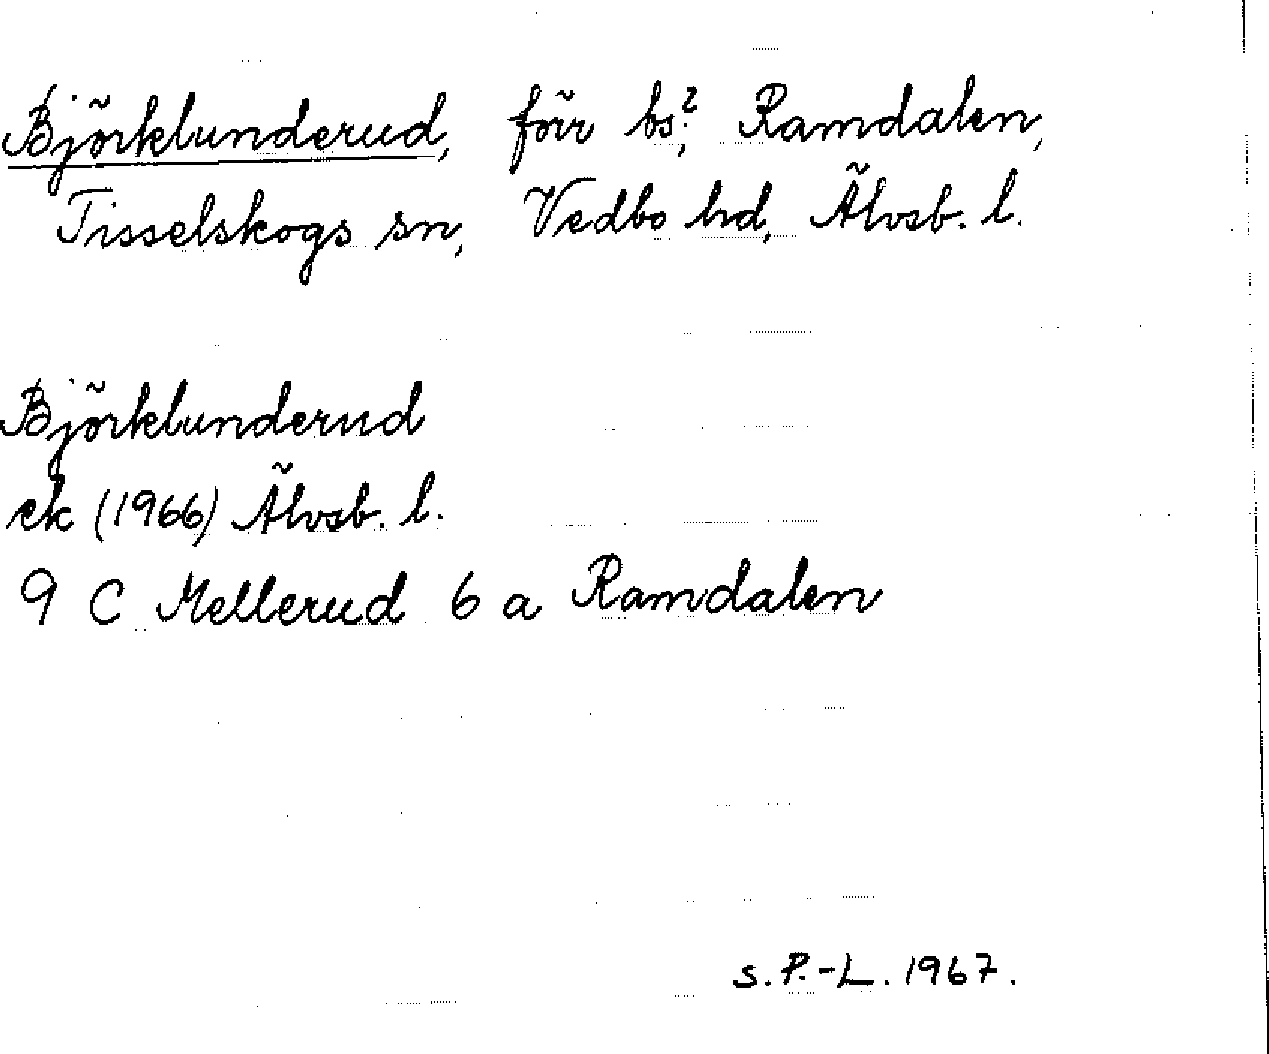 Björklunderud, förr bs?, Ramdalen,
Tisselskogs sn, Vedbo hd, Älvsb. l.
Björklunderud
ek (1966) Älvsb. l.
9 C Mellerud 6 a Ramdalen
S.P.-L. 1967.